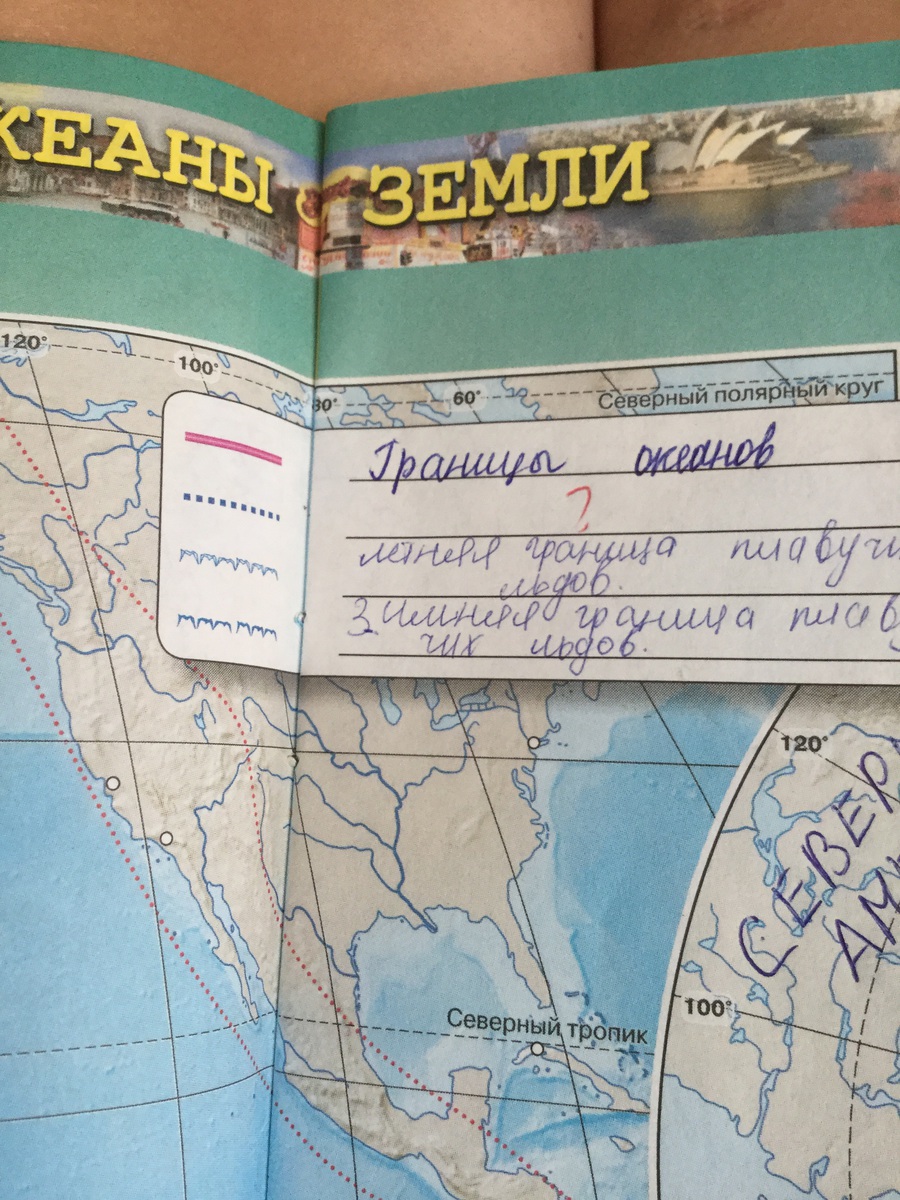 КЕАНЫ ЗЕМЛИ
120°
100°
80°
60°
Северный полярный круг
Границы океанов
?
летняя граница плавучи
льдов.
Зимняя граница плав
чих льдов.
120°
СЕВЕР
АМ
100°
Северный тропик